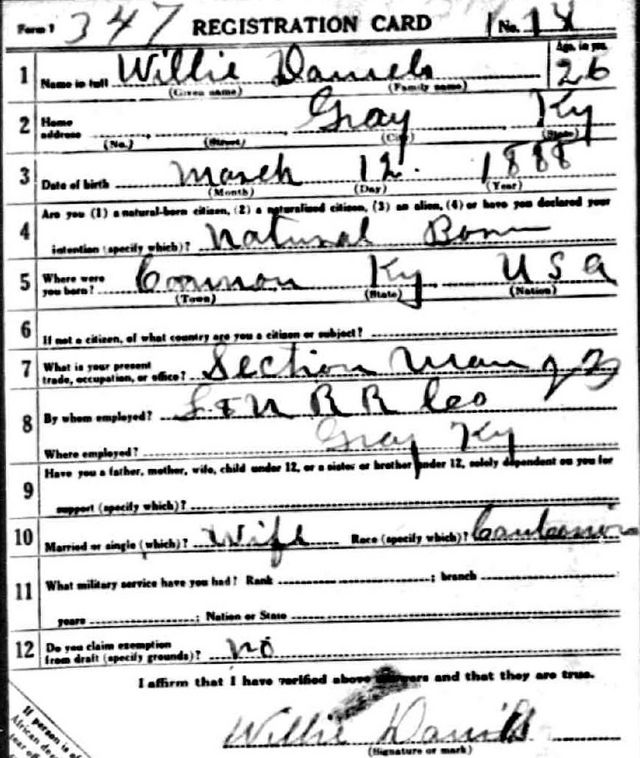 Form 1 347 REGISTRATION CARD No. 14
1 Name in full Willie Daniels Age, in yrs. 26
(Given name) (Family name)
2 Home address Gray Ky
(No.) (Street) (City) (State)
3 Date of birth March 12 1888
(Month) (Day) (Year)
4 Are you (1) a natural-born citizen, (2) a naturalized citizen, (3) an alien, (4) or have you declared your
intention (specify which)? Natural Born
5 Where were you born? Ky U S A
(Town) (State) (Nation)
6 If not a citizen, of what country are you a citizen or subject?
7 What is your present trade, occupation, or office? Section Man
8 By whom employed? L & N R R Co
Where employed? Gray Ky
9 Have you a father, mother, wife, child under 12, or a sister or brother under 12, solely dependent on you for
support (specify which)?
10 Married or single (which)? Wife Race (specify which)?
11 What military service have you had? Rank ; branch
years ; Nation or State
12 Do you claim exemption from draft (specify grounds)? no
I affirm that I have verified above answers and that they are true.
Willie Daniels
(Signature or mark)
If person is of
African